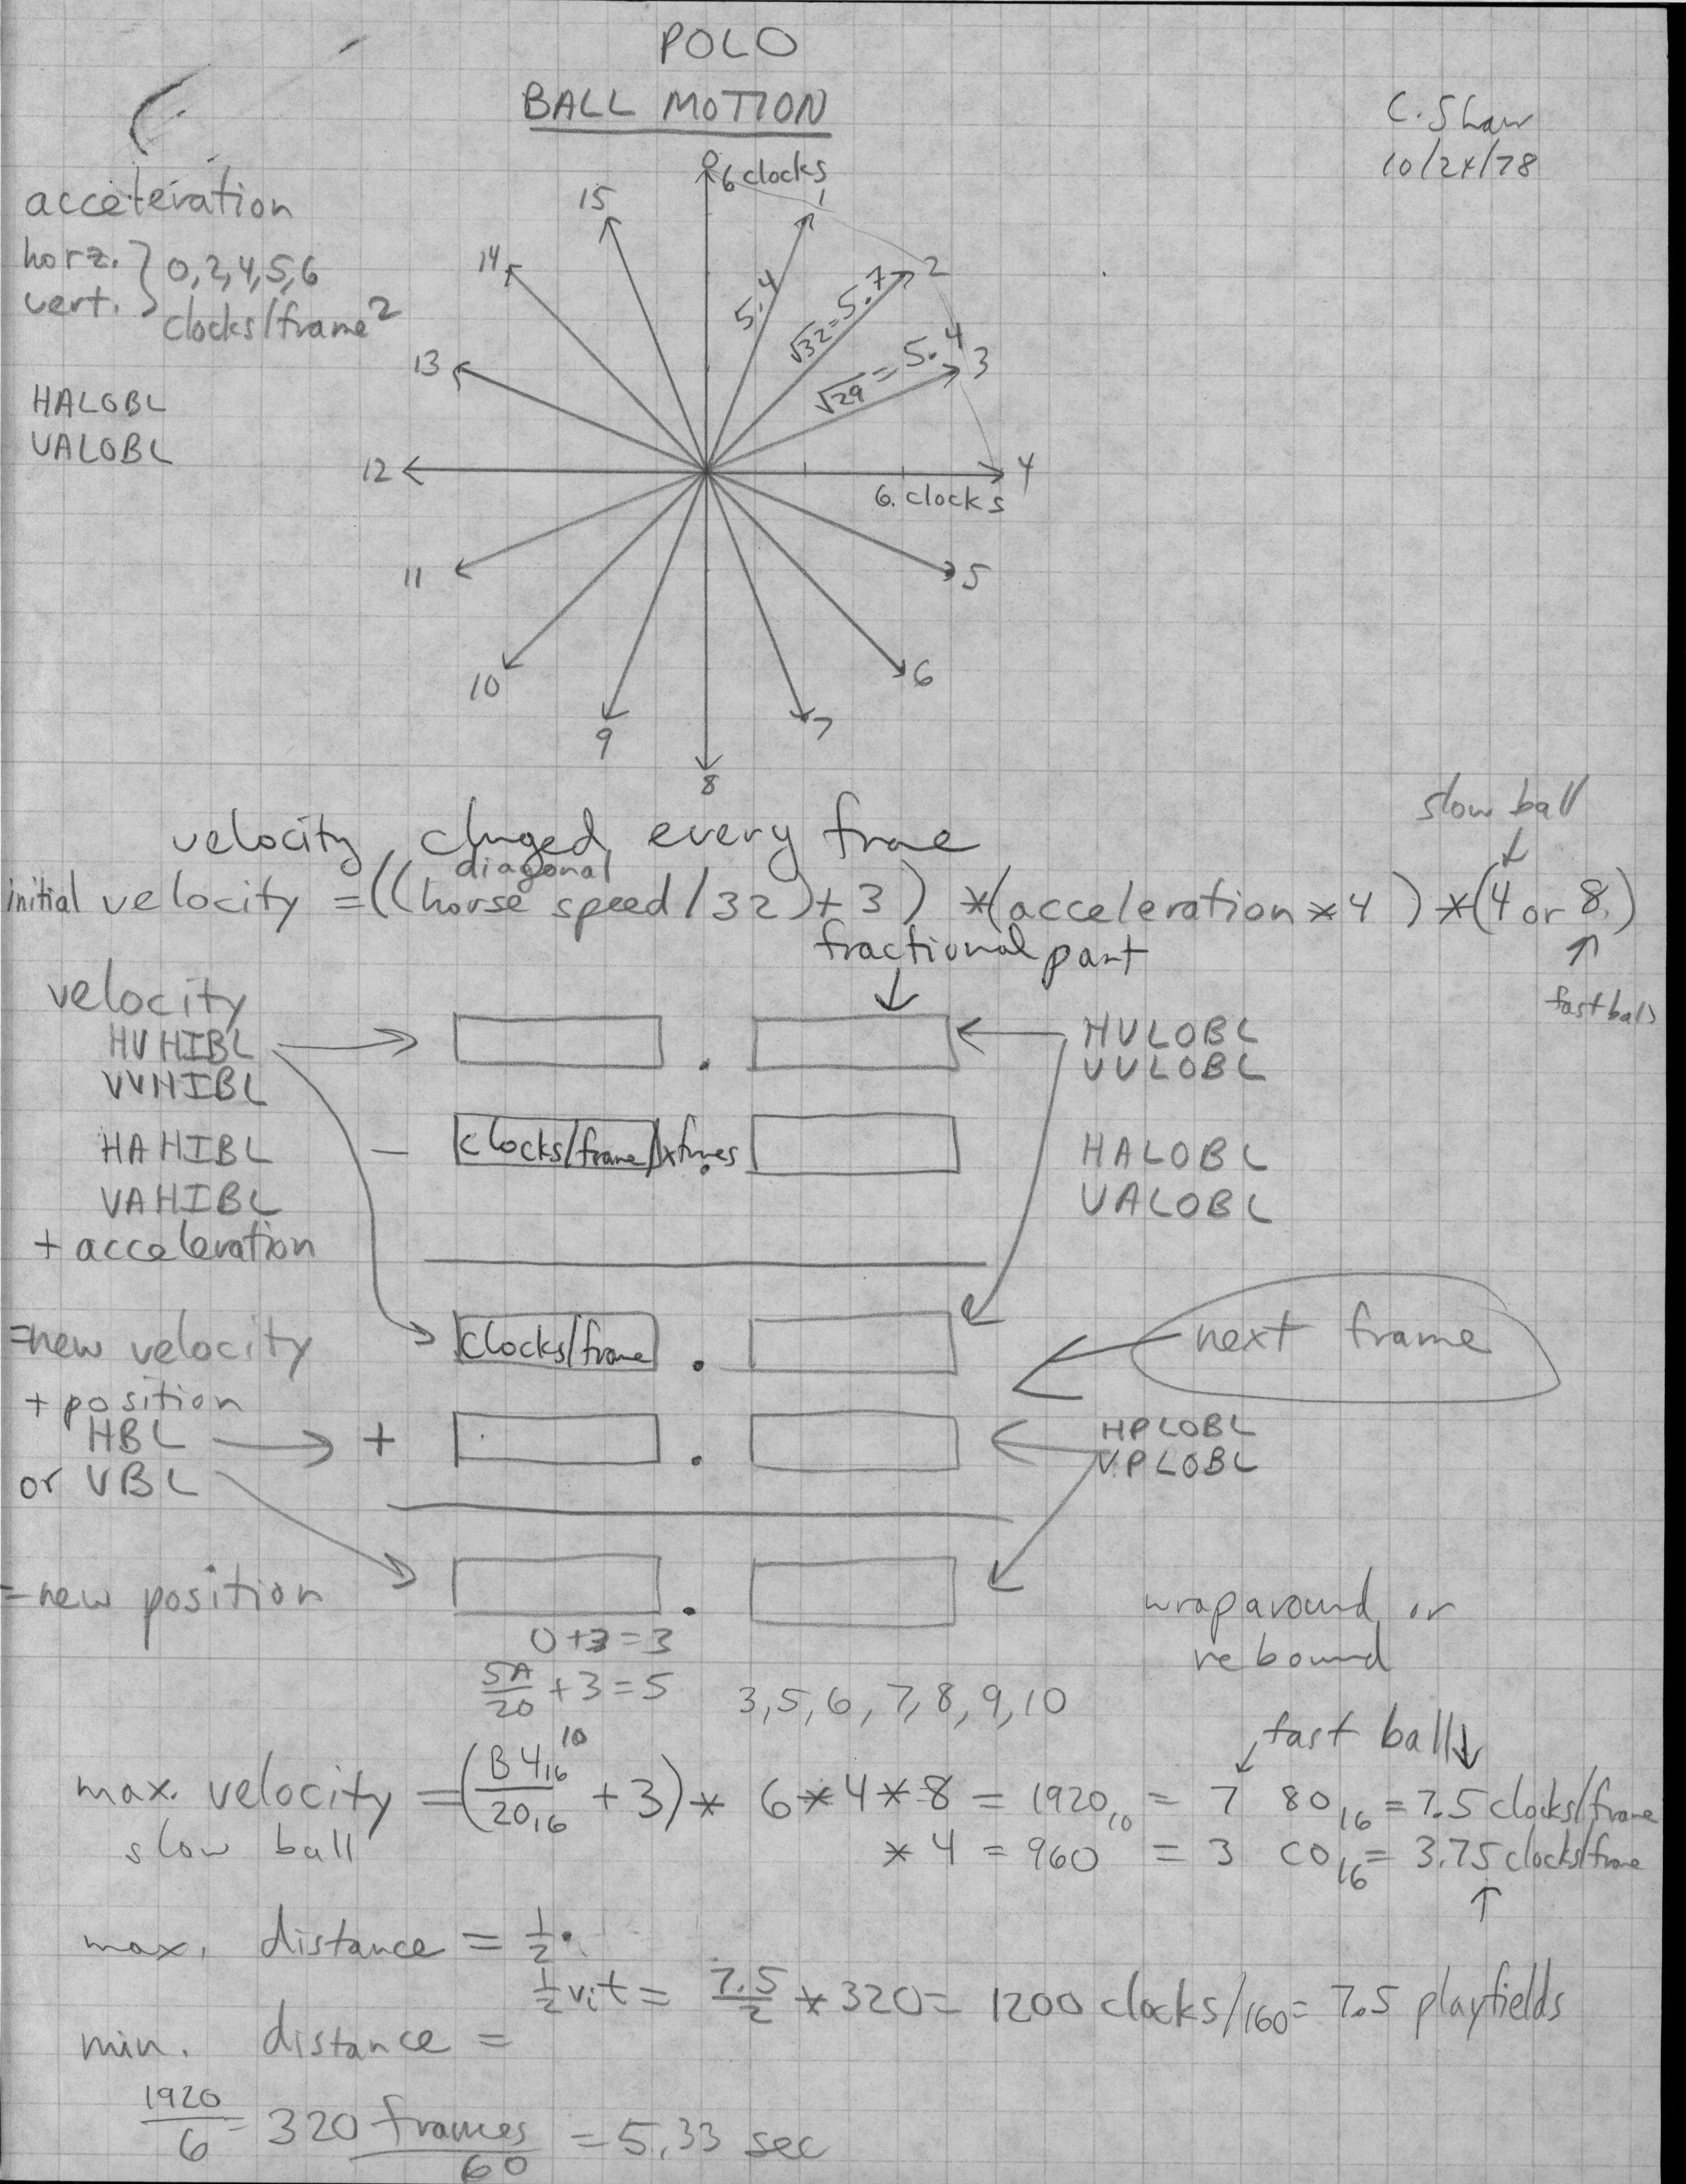 POLO
BALL MOTION
C. Shaw
10/24/78
acceleration
horz. } 0, 2, 4, 5, 6
vert. } clocks/frame²
HALOBL
VALOBL
0
6 clocks
1
2
3
4
6. clocks
5
6
7
8
9
10
11
12
13
14
15
5.4
√32 = 5.7
√29 = 5.4
velocity changed every frame
slow ball
diagonal
initial velocity = ((horse speed / 32) + 3) * (acceleration * 4) * (4 or 8.)
fast ball
fractional part
velocity
HVHIBL
VVHIBL
.
HVLOBL
VVLOBL
HAHIBL
VAHIBL
+ acceleration
− clocks/frame/ .
HALOBL
VALOBL
= new velocity
clocks/frame .
next frame
+ position
HBL
or VBL
+ .
HPLOBL
VPLOBL
= new position
.
wraparound or
rebound
0 + 3 = 3
5A/20 + 3 = 5
3, 5, 6, 7, 8, 9, 10
fast ball
max. velocity = (B4₁₆/20₁₆ + 3) * 6 * 4 * 8 = 1920₁₀ = 7 80₁₆ = 7.5 clocks/frame
10
slow ball
* 4 = 960 = 3 C0₁₆ = 3.75 clocks/frame
max. distance = ½ .
½ vᵢt = 7.5/2 * 320 = 1200 clocks/160 = 7.5 playfields
min. distance =
1920/6 = 320 frames/60 = 5.33 sec